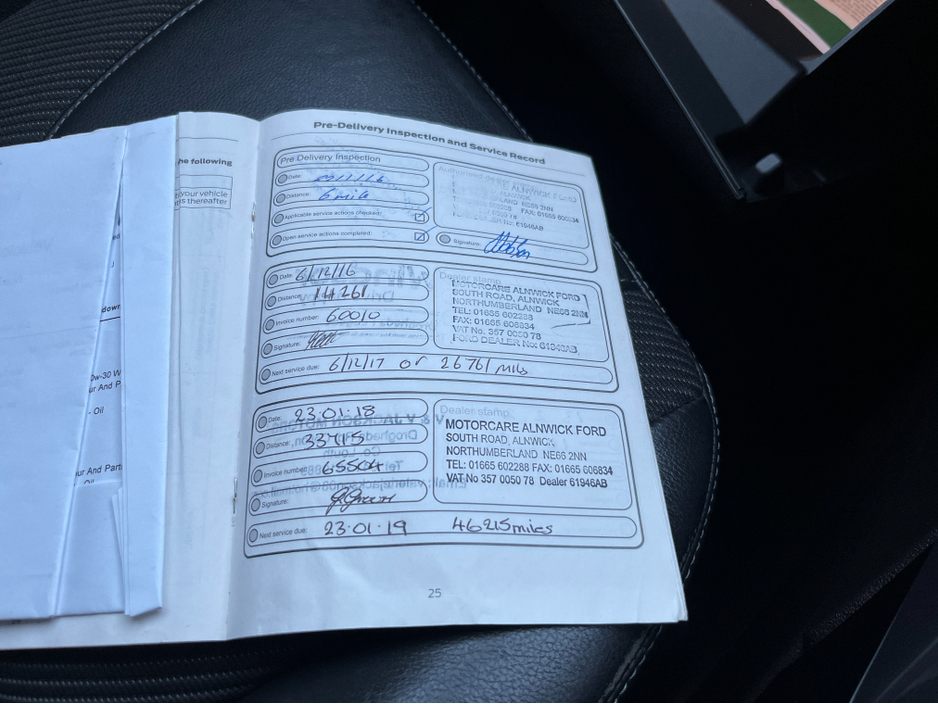 he following
your vehicle
ts thereafter
down
0w-30 W
ur And P
- Oil
ur And Part
Pre-Delivery Inspection and Service Record
Pre Delivery Inspection
Date:
Distance: 6 mile
Applicable service actions (checked)
Open service actions completed:
Signature:
Date: 6/12/16
Distance: 14261
Invoice number: 60010
Signature:
Next service due: 6/12/17 or 26761 mils
Dealer stamp
MOTORCARE ALNWICK FORD
SOUTH ROAD, ALNWICK
NORTHUMBERLAND NE66 2NN
TEL: 01665 602288
FAX: 01665 606834
VAT No. 357 0050 78
FORD DEALER No: 61946AB
Date: 23.01.18
Distance: 33715
Invoice number: 65504
Signature:
Next service due: 23.01.19 46215miles
Dealer stamp
MOTORCARE ALNWICK FORD
SOUTH ROAD, ALNWICK
NORTHUMBERLAND NE66 2NN
TEL: 01665 602288 FAX: 01665 606834
VAT No 357 0050 78 Dealer 61946AB
25